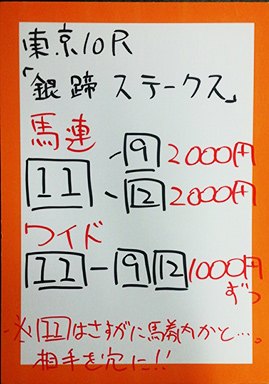 東京10R
「銀蹄ステークス」
馬連
11 - 9 2000円
- 12 2000円
ワイド
11 - 9 12 1000円
ずつ
※11はさすがに馬券内かと…。
相手を穴に!!